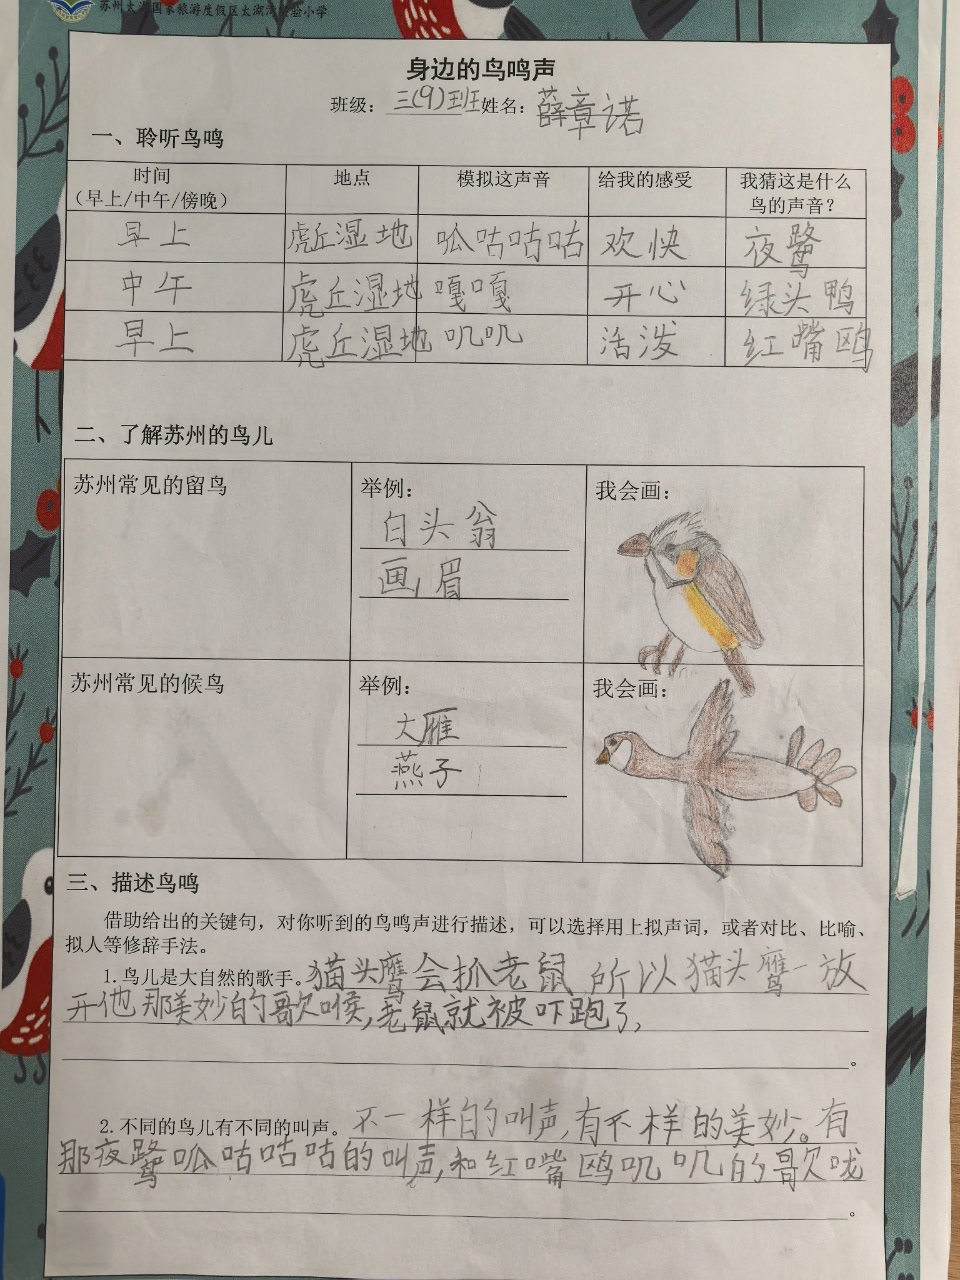 苏州太湖国家旅游度假区太湖湾实验小学
身边的鸟鸣声
班级：三(9)班姓名：薛章诺
一、聆听鸟鸣
时间
（早上/中午/傍晚）
地点
模拟这声音
给我的感受
我猜这是什么
鸟的声音？
早上 虎丘湿地 呱咕咕咕 欢快 夜鹭
中午 虎丘湿地 嘎嘎 开心 绿头鸭
早上 虎丘湿地 叽叽 活泼 红嘴鸥
二、了解苏州的鸟儿
苏州常见的留鸟
举例：
白头翁
画眉
我会画：
苏州常见的候鸟
举例：
大雁
燕子
我会画：
三、描述鸟鸣
借助给出的关键句，对你听到的鸟鸣声进行描述，可以选择用上拟声词，或者对比、比喻、
拟人等修辞手法。
1.鸟儿是大自然的歌手。猫头鹰会抓老鼠所以猫头鹰一放
开他那美妙的歌喉，老鼠就被吓跑了，
。
2.不同的鸟儿有不同的叫声。不一样的叫声，有不样的美妙。有
那夜鹭呱咕咕咕的叫声，和红嘴鸥叽叽的歌咙
。